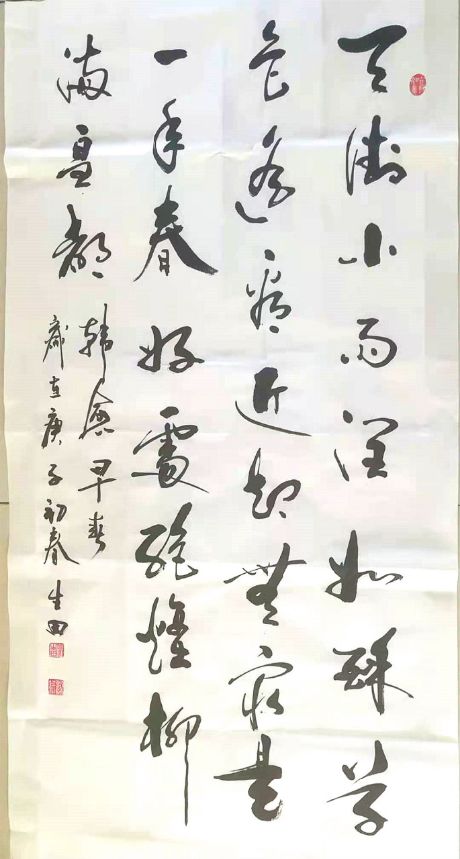 天街小雨润如酥草
色遥看近却無最是
一年春好處絶煙柳
满皇都
韓愈早春
歲在庚子初春生田